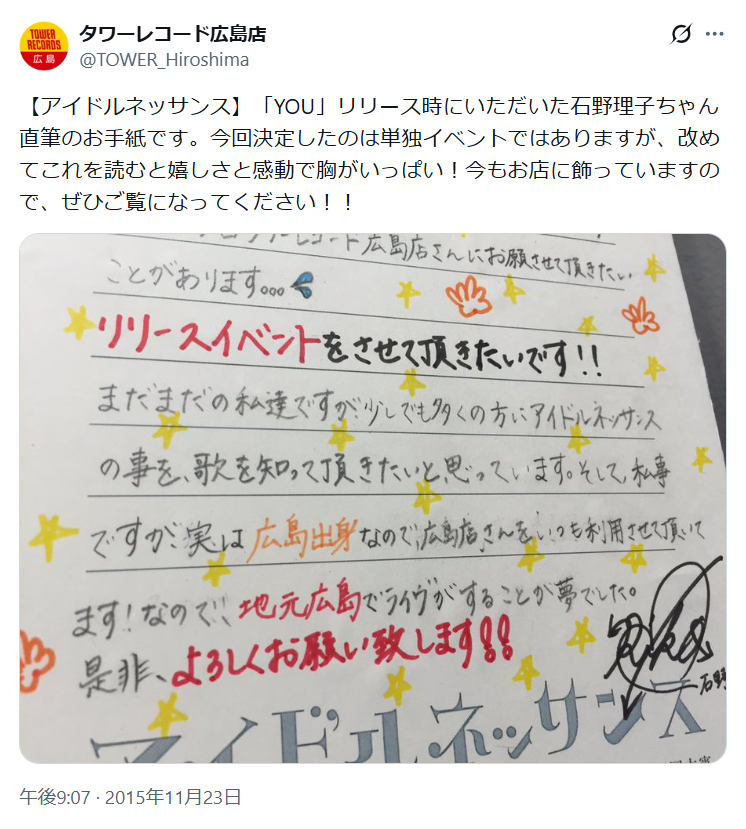 タワーレコード広島店
@TOWER_Hiroshima
TOWER
RECORDS
広島
【アイドルネッサンス】「YOU」リリース時にいただいた石野理子ちゃん
直筆のお手紙です。今回決定したのは単独イベントではありますが、改め
てこれを読むと嬉しさと感動で胸がいっぱい！今もお店に飾っていますの
で、ぜひご覧になってください！！
レコード広島店さんにお願させて頂きたい
ことがあります。。。
リリースイベントをさせて頂きたいです!!
まだまだの私達ですが、少しでも多くの方にアイドルネッサンス
の事を、歌を知って頂きたいと思っています。そして、私事
ですが、実は広島出身なので、広島店さんをいつも利用させて頂いて
ます!なので、地元広島でライヴがすることが夢でした。
是非、よろしくお願い致します!!
石野
アイドルネッサンス
午後9:07 · 2015年11月23日